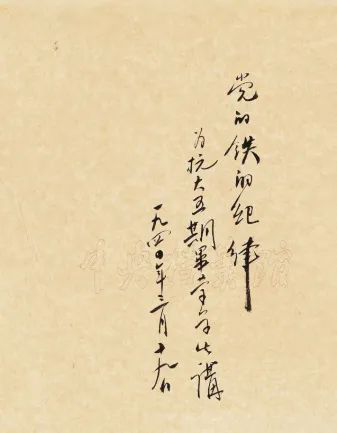 党的铁的纪律
为抗大五期畢業写此講
一九四〇年三月十九日
中央档案馆